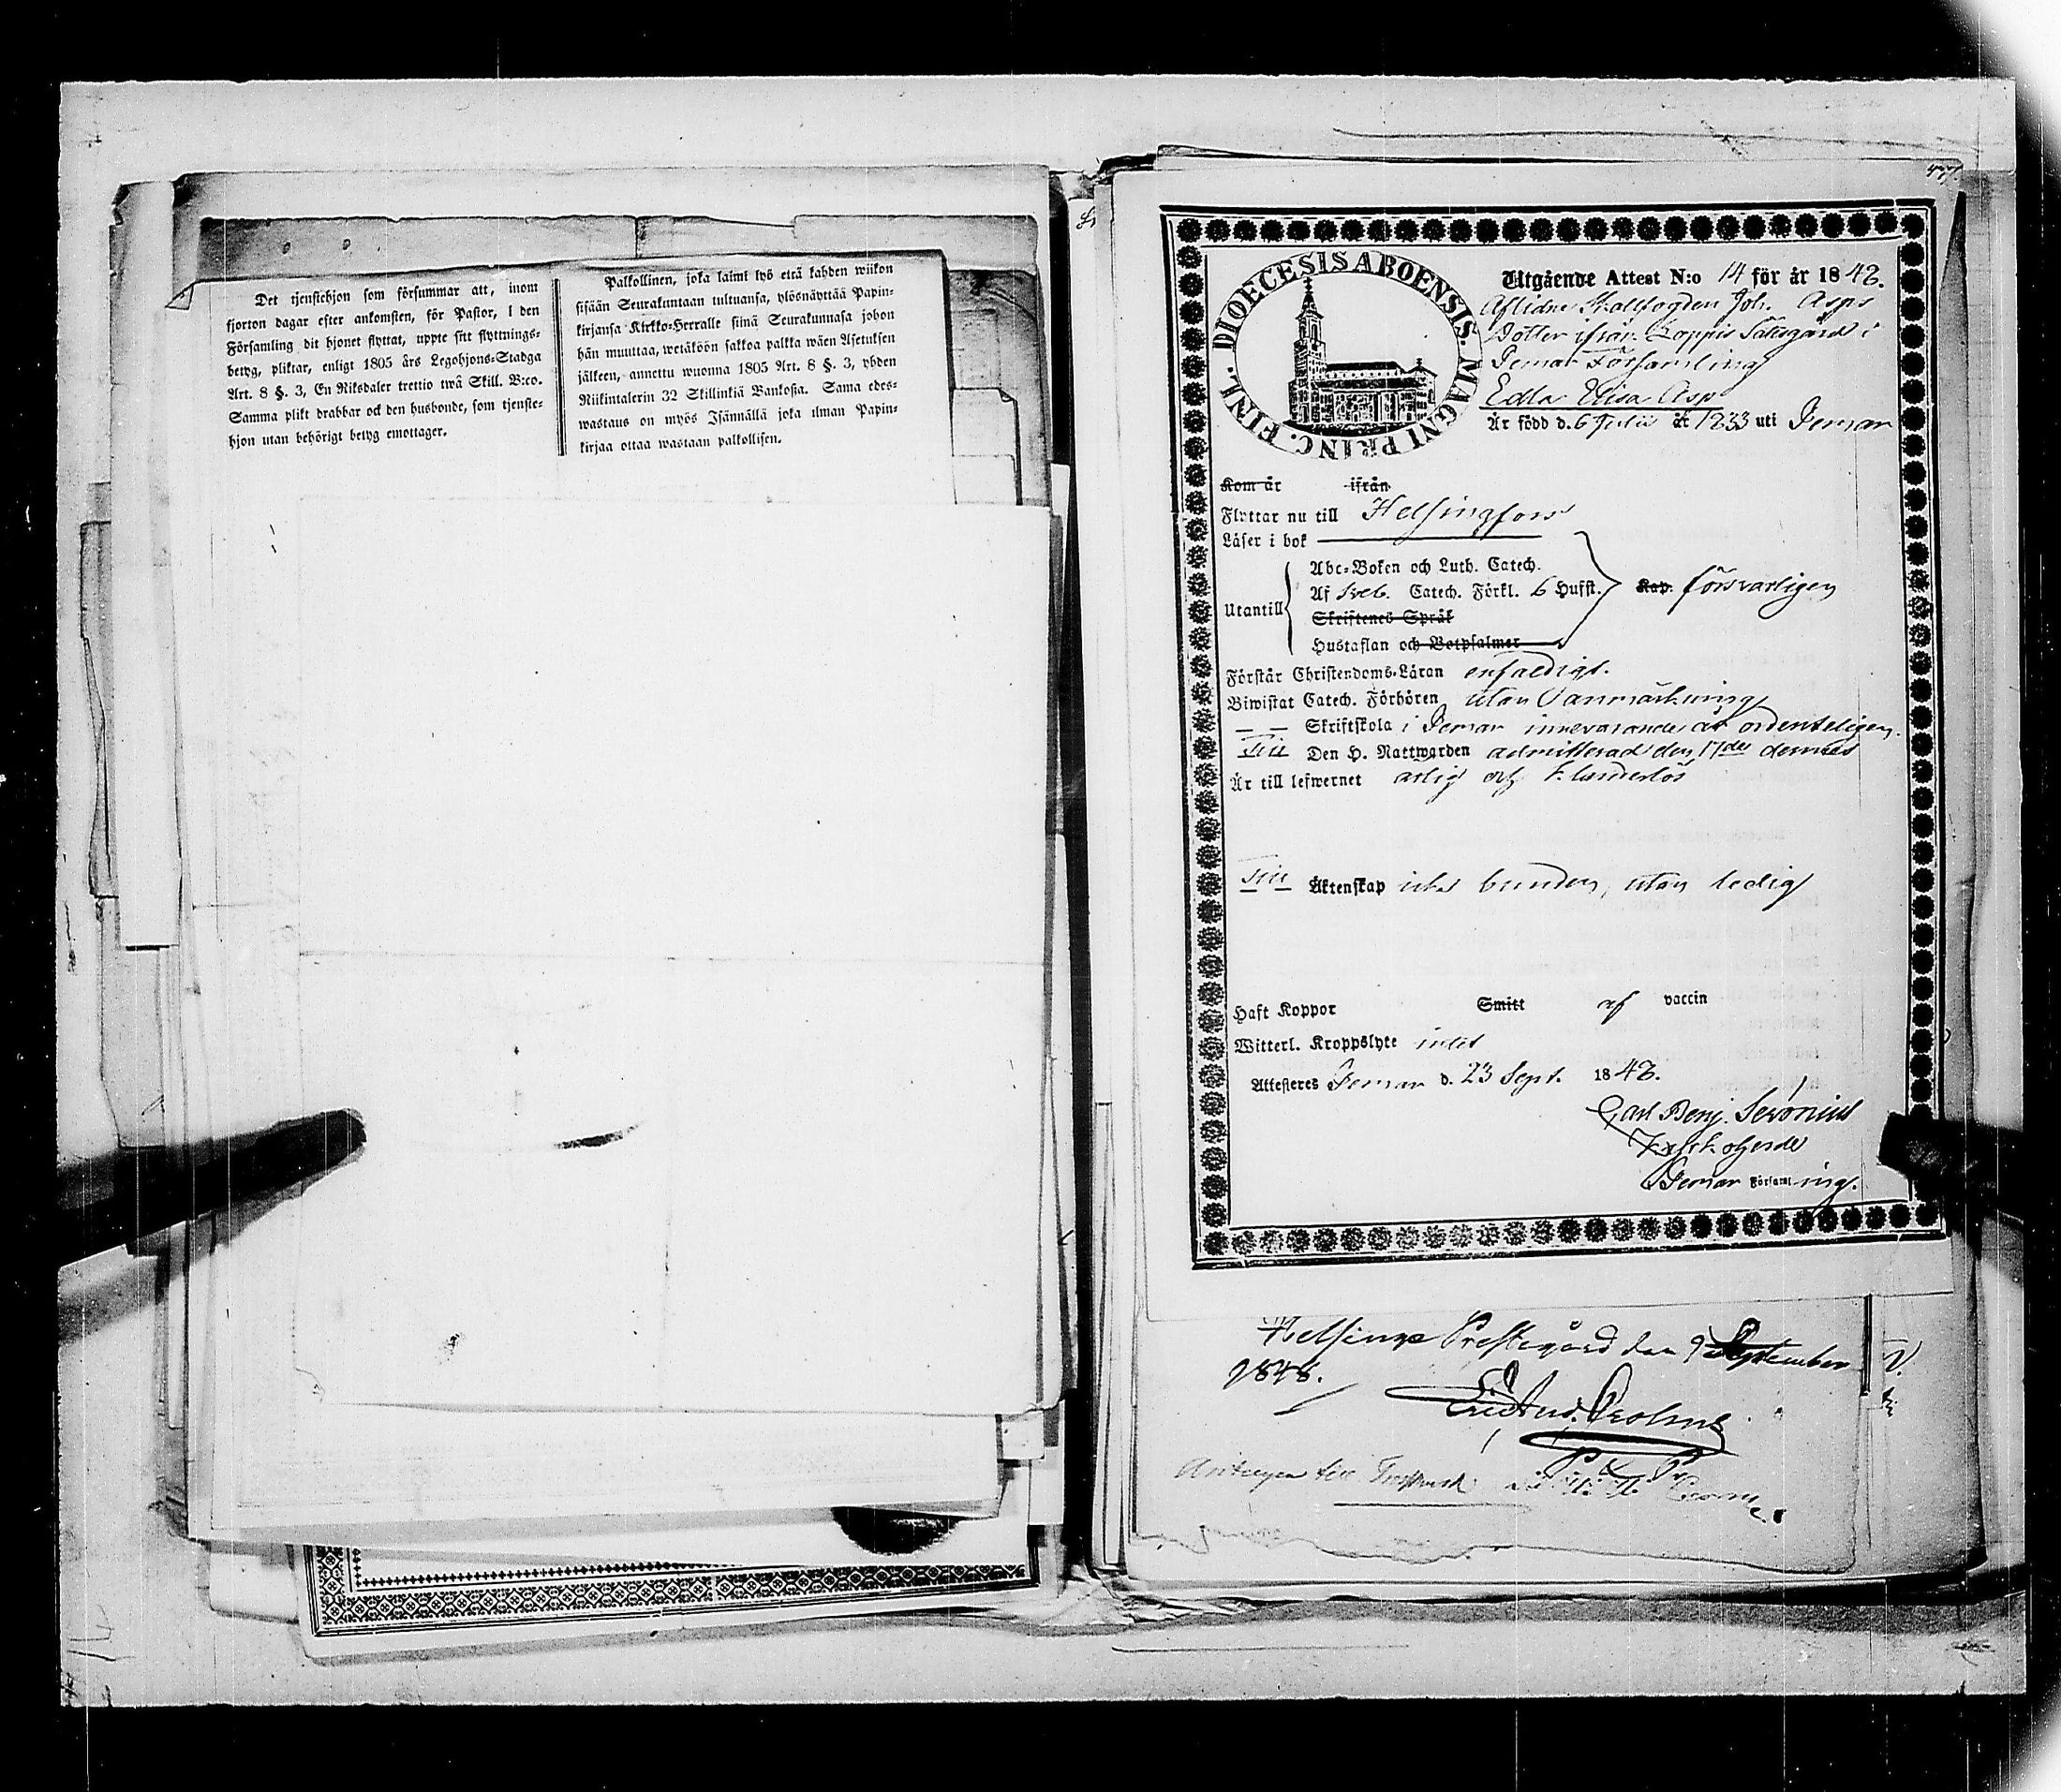 Det tjenstehjon som försummar att, inom
fjorton dagar efter ankomsten, för Pastor, i den
Församling dit hjonet flyttat, uppte sitt flyttnings-
betyg, pliktar, enligt 1805 års Legohjons-Stadga
Art. 8 §. 3, En Riksdaler trettio twå Skill. B:co.
Samma plikt drabbar ock den husbonde, som tjenste-
hjon utan behörigt betyg emottager.
Palkollinen, joka laimi lyö että kahden wiikon
sisään Seurakuntaan tultuansa, ylösnäyttää Papin-
kirjansa Kirkko-Herralle siinä Seurakunnasa johon
hän muuttaa, wetäköön sakkoa palkka wäen Asetuksen
jälkeen, annettu wuonna 1805 Art. 8 §. 3, yhden
Riikintalerin 32 Skillinkiä Bankosa. Sama edes-
wastaus on myös Isännällä joka ilman Papin-
kirjaa ottaa wastaan palkollisen.
DIOECESIS ABOENSIS. MAGNI PRINC. FINL.
Utgående Attest N:o 14 för år 1848.
Aflidne Joh. Asps
Dotter ifrån Loppis i
Pemar Församling
Edla Elisa Asp
Är född d. 6 Julii år 1833 uti Pemar
Kom år ifrån
Flyttar nu till Helsingfors
Läser i bok
Utantill
Abc-Boken och Luth. Catech.
Af Sveb. Catech. Förkl. 6 Hufst.
Skriftenes Språk
Hustaflan och Botpsalmer
Kap. försvarligen
Förstår Christendoms-Läran enfaldigt.
Biwistat Catech. Förhören utan anmärkning
— — Skriftskola i Pemar innevarande år ordenteligen.
Till Den H. Nattwarden admitterad den 17de dennes
Är till lefwernet ärlig och klanderlös
Till Äktenskap icke bunden, utan ledig
Haft Koppor Smitt af vaccin
Witterl. Kroppslyte intet
Attesteres Pemar d. 23 Sept. 1848.
Carl Benj. Serönius
Pemar Församling.
Helsinge Prestegård den 9 September
1848.